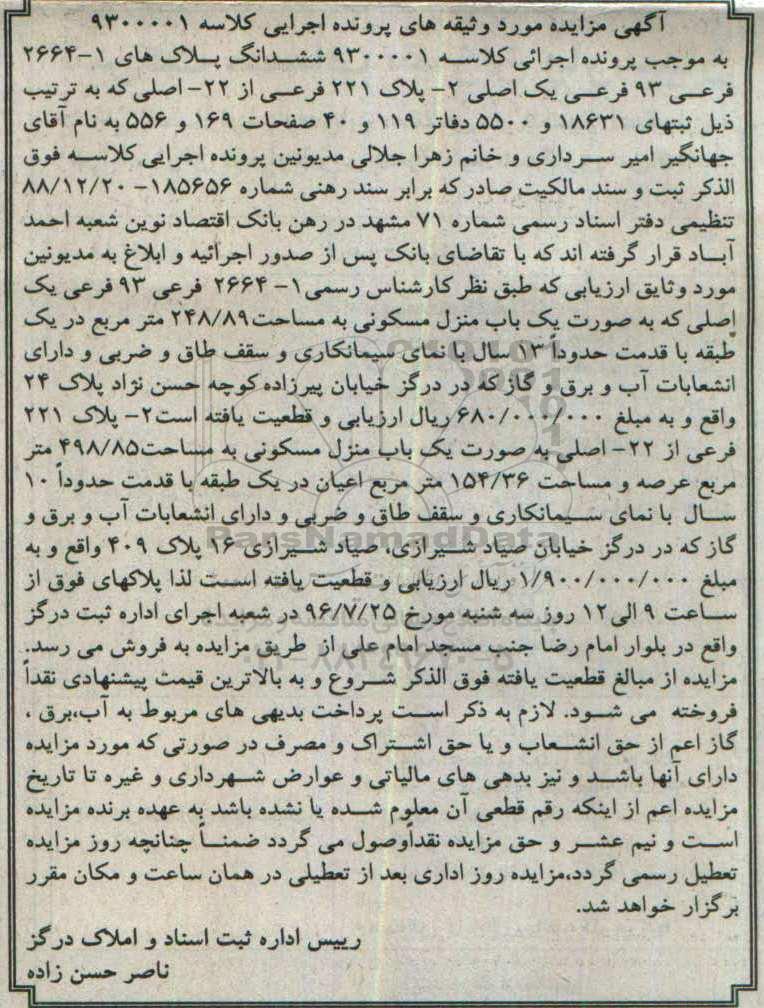 آگهی مزایده مورد وثیقه های پرونده اجرایی کلاسه ۹۳۰۰۰۰۱
به موجب پرونده اجرائی کلاسه ۹۳۰۰۰۰۱ ششدانگ پلاک های ۱-۲۶۶۴
فرعی ۹۳ فرعی یک اصلی ۲- پلاک ۲۲۱ فرعی از ۲۲- اصلی که به ترتیب
ذیل ثبتهای ۱۸۶۳۱ و ۵۵۰۰ دفاتر ۱۱۹ و ۴۰ صفحات ۱۶۹ و ۵۵۶ به نام آقای
جهانگیر امیر سرداری و خانم زهرا جلالی مدیونین پرونده اجرایی کلاسه فوق
الذکر ثبت و سند مالکیت صادر که برابر سند رهنی شماره ۱۸۵۶۵۶- ۸۸/۱۲/۲۰
تنظیمی دفتر اسناد رسمی شماره ۷۱ مشهد در رهن بانک اقتصاد نوین شعبه احمد
آباد قرار گرفته اند که با تقاضای بانک پس از صدور اجرائیه و ابلاغ به مدیونین
مورد وثایق ارزیابی که طبق نظر کارشناس رسمی ۱- ۲۶۶۴ فرعی ۹۳ فرعی یک
اصلی که به صورت یک باب منزل مسکونی به مساحت ۲۴۸/۸۹ متر مربع در یک
طبقه با قدمت حدوداً ۱۳ سال با نمای سیمانکاری و سقف طاق و ضربی و دارای
انشعابات آب و برق و گاز که در درگز خیابان پیرزاده کوچه حسن نژاد پلاک ۲۴
واقع و به مبلغ ۶۸۰/۰۰۰/۰۰۰ ریال ارزیابی و قطعیت یافته است ۲- پلاک ۲۲۱
فرعی از ۲۲- اصلی به صورت یک باب منزل مسکونی به مساحت ۴۹۸/۸۵ متر
مربع عرصه و مساحت ۱۵۴/۳۶ متر مربع اعیان در یک طبقه با قدمت حدوداً ۱۰
سال با نمای سیمانکاری و سقف طاق و ضربی و دارای انشعابات آب و برق و
گاز که در درگز خیابان صیاد شیرازی، صیاد شیرازی ۱۶ پلاک ۴۰۹ واقع و به
مبلغ ۱/۹۰۰/۰۰۰/۰۰۰ ریال ارزیابی و قطعیت یافته است لذا پلاکهای فوق از
ساعت ۹ الی ۱۲ روز سه شنبه مورخ ۹۶/۷/۲۵ در شعبه اجرای اداره ثبت درگز
واقع در بلوار امام رضا جنب مسجد امام علی از طریق مزایده به فروش می رسد.
مزایده از مبالغ قطعیت یافته فوق الذکر شروع و به بالاترین قیمت پیشنهادی نقداً
فروخته می شود. لازم به ذکر است پرداخت بدیهی های مربوط به آب،برق ،
گاز اعم از حق انشعاب و یا حق اشتراک و مصرف در صورتی که مورد مزایده
دارای آنها باشد و نیز بدهی های مالیاتی و عوارض شهرداری و غیره تا تاریخ
مزایده اعم از اینکه رقم قطعی آن معلوم شده یا نشده باشد به عهده برنده مزایده
است و نیم عشر و حق مزایده نقداًوصول می گردد ضمناً چنانچه روز مزایده
تعطیل رسمی گردد،مزایده روز اداری بعد از تعطیلی در همان ساعت و مکان مقرر
برگزار خواهد شد.
رییس اداره ثبت اسناد و املاک درگز
ناصر حسن زاده
ParsNamadData